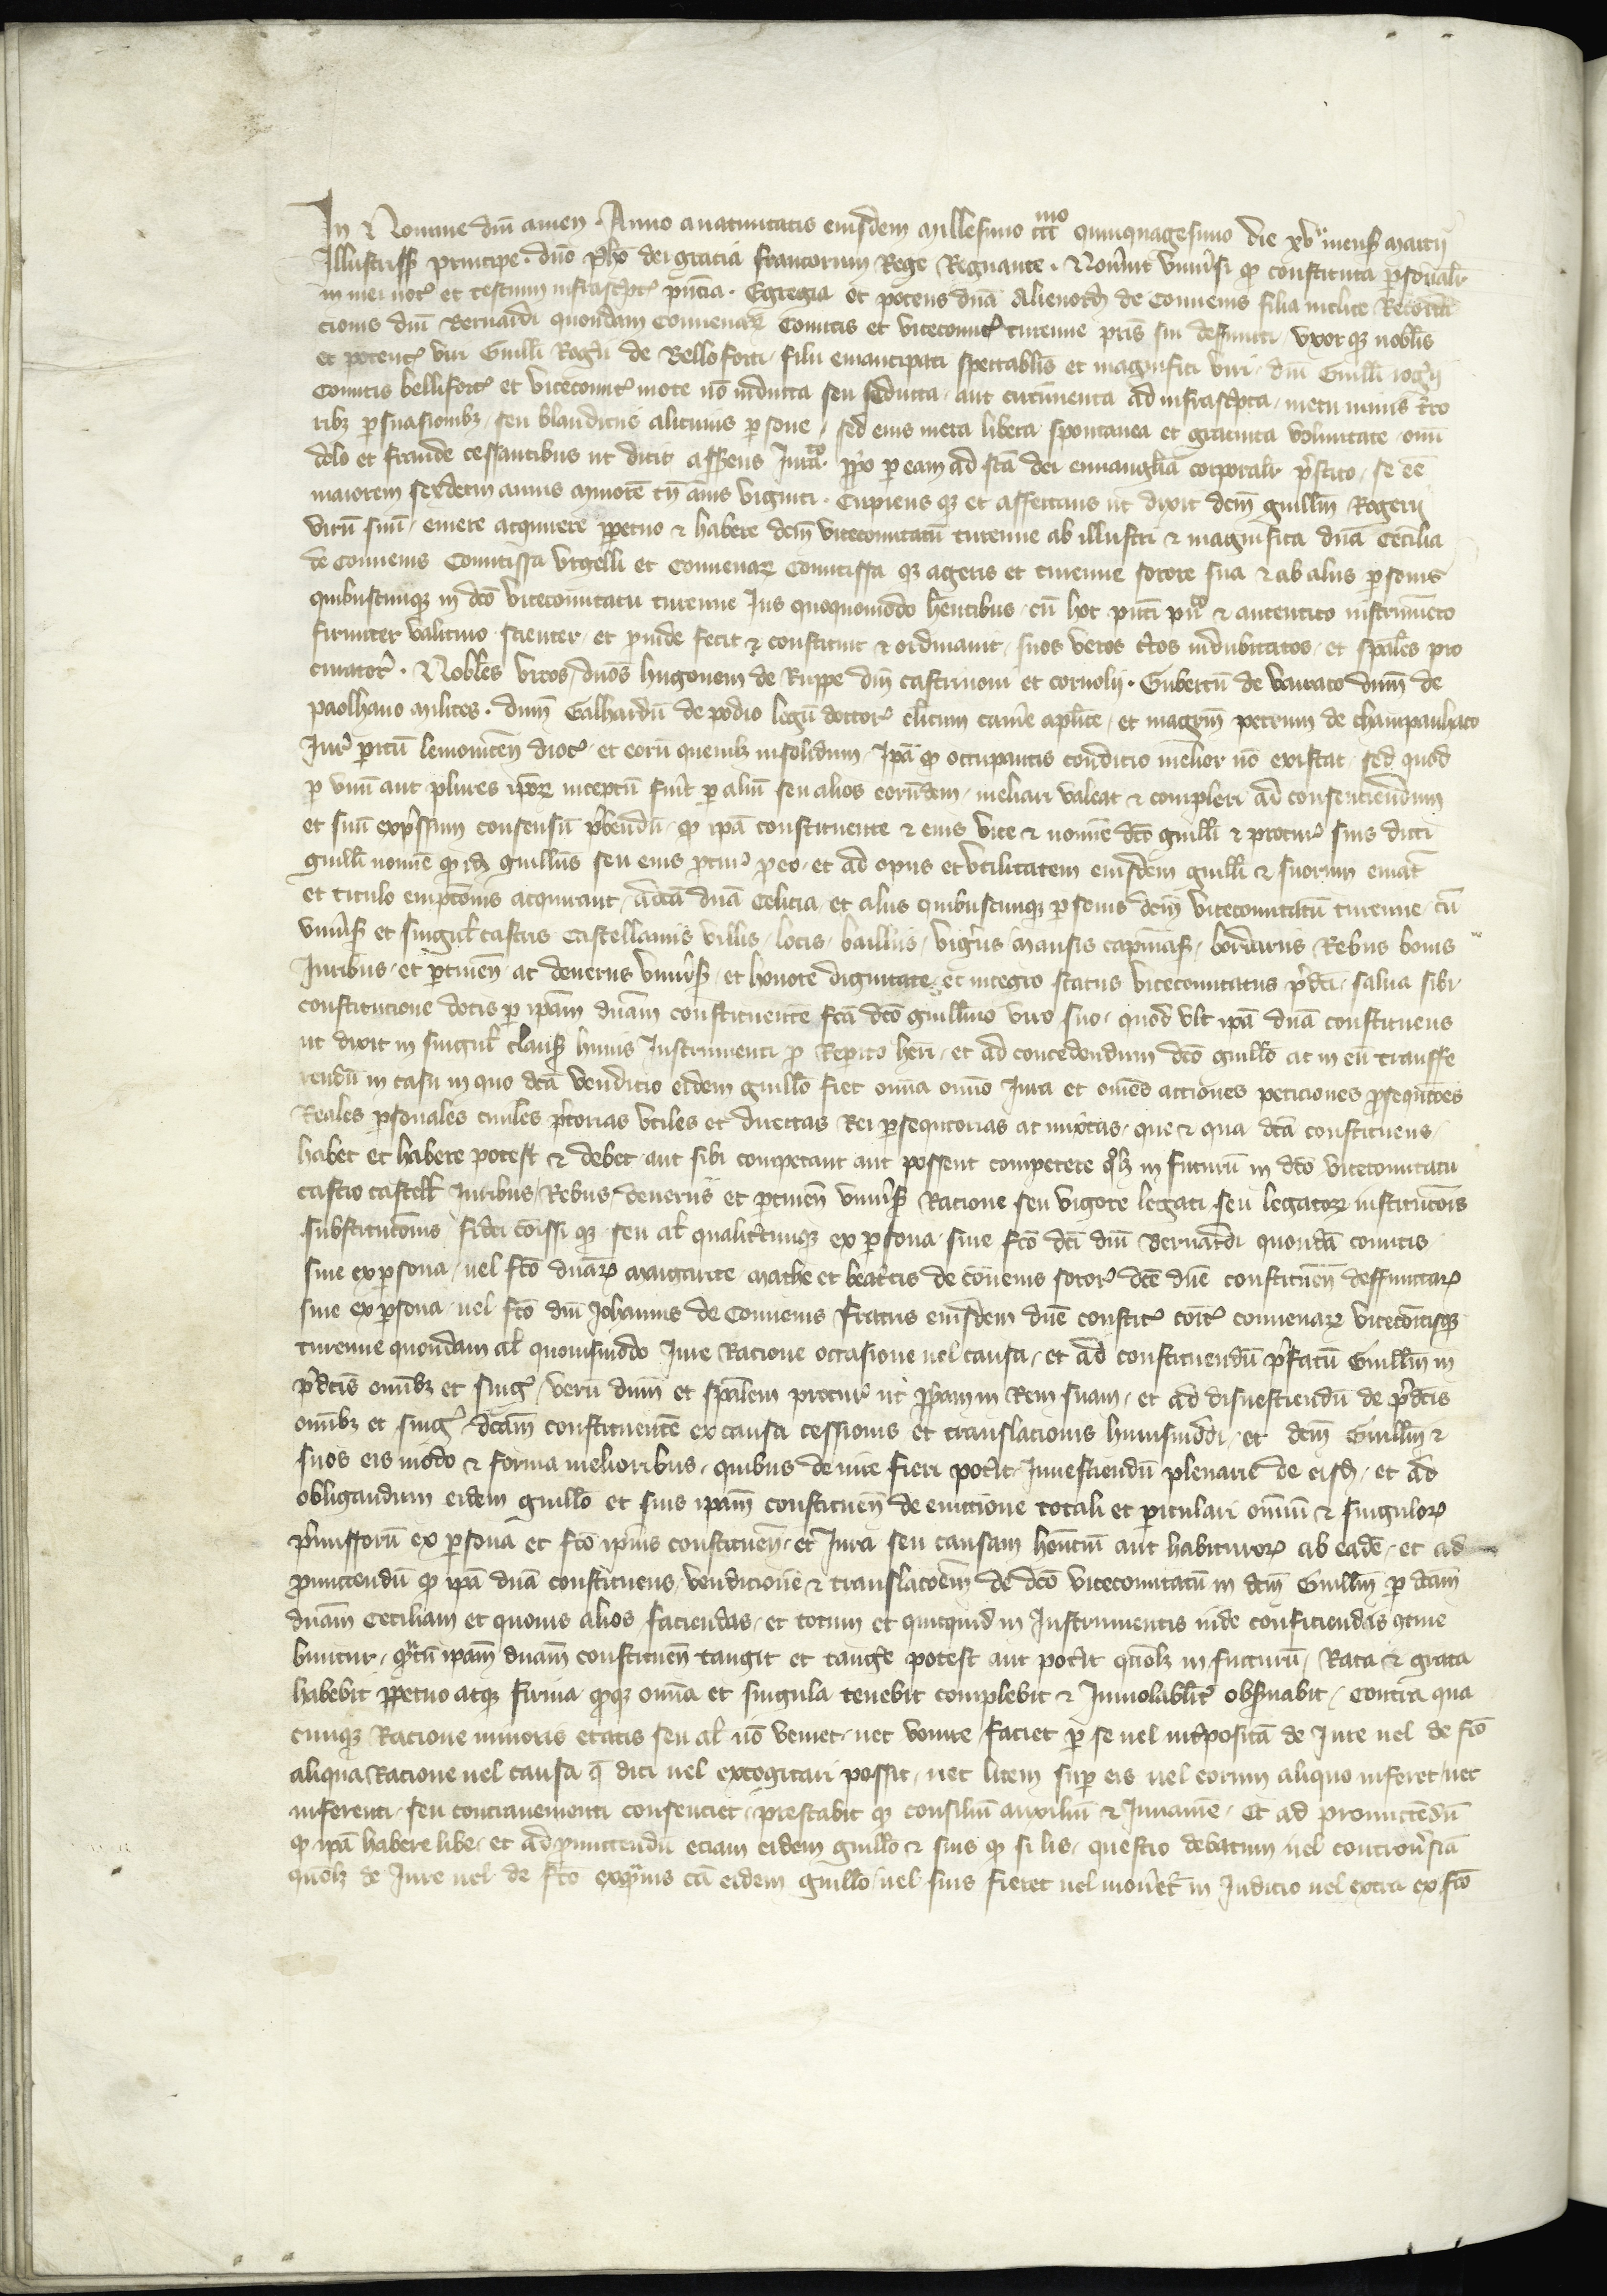 In Nomine dni amen. Anno a natiuitatis eiusdem millesimo ccc mo quinquagesimo die xv mens marcij
Illustriss principe. dno Pho dei gracia francorum Rege Regnante. Nouint vniusi qd constituta psonalr
in mei not et testium infrascpt pncia. Egregia et potens dna Alienordis de Conuenis filia inclite Recorda
cionis dni Bernardi quondam Conuenar Comitis et vicecomit turenne pris sui defuncti, vxor qz noblis
et potent viri Guilli Rogij de Belloforti, filii emancipati spectablis et magnifici viri, dni Guilli rogij
Comitis bellifort et vicecomit mote no inducta seu seducta, aut circumuenta ad infrascpta, metu minis terro
ribz psuasionibz, seu blandiciis alicuius psone, sed eius mera libera spontanea et gratuita voluntate, omi
dolo et fraude cessantibus ut dicit assens Iurato ppo p eam ad sca dei euuanglia corporalr pstito, se ee
maiorem sexdecim annis minore tn annis viginti. Cupiens qz et affectans ut dixit dcm guillm Rogerij
viru suu, emere acquirere ppetuo & habere dcm vicecomitatu turenne ab illustri & magnifica dna Cecilia
de Conuenis Comitissa Vrgelli et Conuenar Comitissa qz ageris et turenne sorore sua & ab aliis psonis
quibuscunqz in dco vicecomitatu turenne Ius quoquomodo hentibus, cu hoc pnti puco & autentico instrumeto
firmiter valituro scienter, et pinde fecit & constituit & ordinauit, suos veros ctos indubitatos, et spales pro
curator. Nobles viros, dnos hugonem de Ruppe dnm castrinoui et cornolij. Gubertu de dnm de
paolhano milites. dnm Galhardu de podio legu doctor clicum came aplice, et magrm petrum de champanhaco
Iur pitu lemonicen dioc, et eoru quemlz insolidum, Ipa qd occupantis condicio melior no existat, sed quod
p vnu aut plures ipor inceptu fuit p aliu seu alios eorudem, mediari valeat & compleri ad consenciendum
et suu expssum consensu pbendu, qd ipa constituente & eius vice & nomie dco guilli & procur suis dicti
guilli nomie qd idz guillms seu eius pcur p eo, et ad opus et vtilitatem eiusdem guilli & suorum emat
et titulo empcionis acquirant, a dca dna Celicia, et aliis quibuscunqz psonis dcm vicecomitatu turenne, cu
vniuss et singul castris Castellaniis villis, locis, bailliis, vigiis mansis capmas, bordariis Rebus bonis
Iuribus, et ptinen ac deueriis vniuss, et honore dignitate, et integro status vicecomitatus pdci, salua sibi
constitucione dotis p ipam dnam constituente fca dco guillmo viro suo, quod vlt ipa dna constituens
ut dixit in singul claus huius Instrumenti p Repito heri, et ad concedendum dco guillo ac in eu transfe
rendu in casu in quo dca vendicio eidem guillo fiet omia omio Iura et omes actiones peticiones psequcoes
Reales psonales ciuiles ptorias vtiles et directas Rei psequtorias ac mixtas, que & qua dca constituens,
habet et habere potest & debet, aut sibi competant aut possent competere qolz in futuru in dco vicecomitatu
castro castell Iuribus, Rebus, deueriis et ptinen vniuss Racione seu vigore legati, seu legator institucois
substitucois fidei coissi qz seu al qualitcunqz ex psona, siue fco dci dni Bernardi quonda comitis
siue ex psona, uel fco dnar margarite mathe et beatcis de couenis soror dce dne constituen deffunctar
siue ex psona, uel fco dni Iohannis de Conuenis fratris eiusdem dne constit coit conuenar vicecoitisqz
turenne quondam al quouismodo Iure Racione occasione uel causa, et ad constituendu pfatu Guillm in
pdcis omibz et sing, veru dnm et spalem procur ut ppam in Rem suam, et ad disuestiendu de pdcis
omibz et sing dcam constituente ex causa cessionis et translacionis huiusmodi, et dcm Guillm &
suos eis modo & forma melioribus, quibus de iure fieri potit, Inuestiendu plenarie de eisd, et ad
obligandum eidem guillo et suis ipam constituen de euictione totali et pticulari omniu & singulor
pmissoru ex psona et fco ipius constituen, et Iura seu causam hentiu aut habituror ab eade, et ad
pmittendu qd ipa dna constituens, vendicione & translacoem de dco vicecomitatu in dcm Guillm p dcam
dnam Ceciliam et quouis alios faciendas, et totum et quicquid in Instrumentis inde conficiendis conine
buntur, qtu ipam dnam constituen tangit et tange potest aut potit quolz in futuru, Rata & grata
habebit ppetuo atqz firma qdqz omia et singula tenebit complebit & Inuiolablit obsuabit, Contra qua
cunqz Racione minoris etatis seu al no veniet, nec venire faciet p se uel intposita de Iure uel de fco
aliqua Racione uel causa q dici uel excogitari possit, nec litem sup eis uel eorum aliquo inferet, nec
inferenti, seu contrauenienti consenciet, prestabit qz consiliu auxiliu & Iuuame, Et ad promictedu
qd ipa habere libe, et ad pmittendu eciam eidem guillo & suis qd si lis, questio debatum uel controusia
quolz de Iure uel de fco exqiuis ca eidem guillo, uel suis fieret uel mouet in Iudicio uel extra ex fco